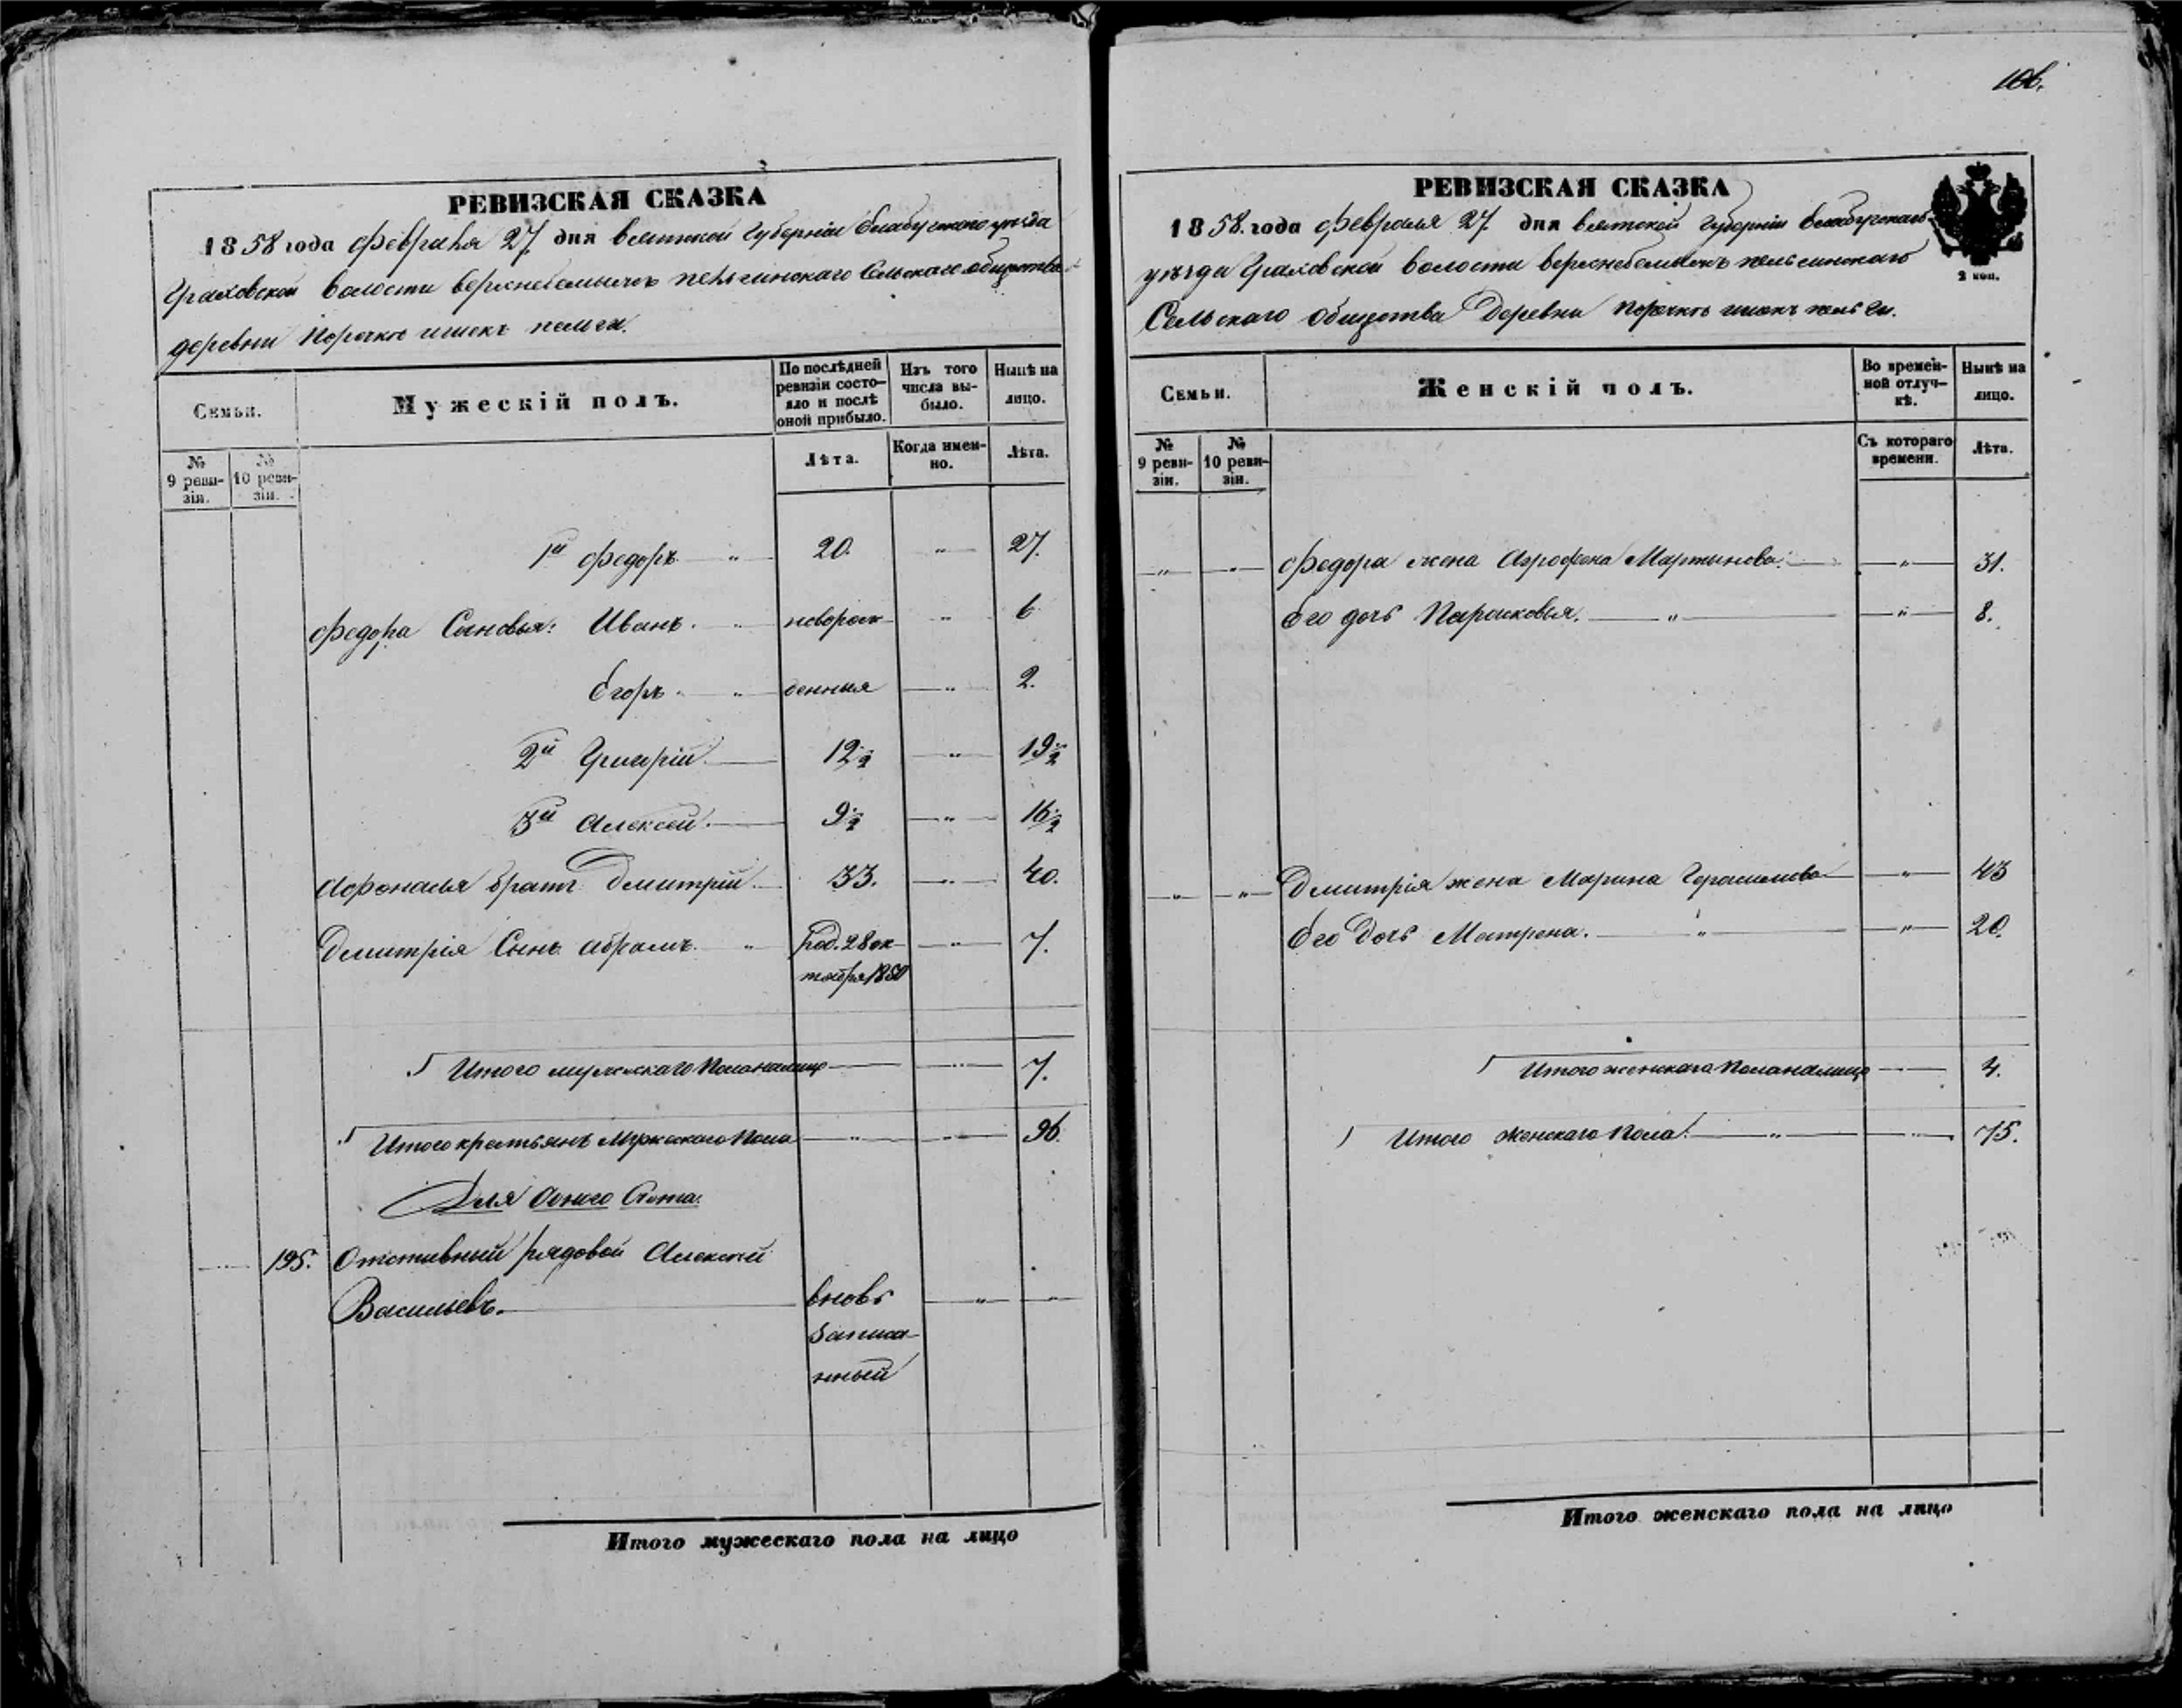 106.
РЕВИЗСКАЯ СКАЗКА
1858 года Февраля 27 дня Вятской Губерніи Елабужского уѣзда
Граховской волости сельскаго общества
деревни
Семьи.
Мужескій полъ.
По послѣдней ревизіи состояло и послѣ оной прибыло.
Изъ того числа выбыло.
Нынѣ на лицо.
№ 9 ревизіи.
№ 10 ревизіи.
Лѣта.
Когда именно.
Лѣта.
1й Федоръ " 20. " 27.
Федора Сыновья: Иванъ. " новорож " 6
Егоръ. " денныя " 2.
2й Григорій. 12½ " 19½
3й Алексей. 9½ " 16½
Афонасья братъ Дмитрій. 33. " 40.
Дмитрія Сынъ Абрамъ. " род. 28 ок " 7.
тября 1850
Итого мужескаго пола на лицо " 7.
Итого крестьянъ Мужескаго пола " " 96.
Для Счета.
" 195. Отставный рядовой Алексей
Васильевъ. вновь " "
записа
нный
Итого мужескаго пола на лицо
РЕВИЗСКАЯ СКАЗКА
1858. года Февраля 27. дня Вятской Губерніи Елабужскаго
2 коп.
уѣзда Граховской волости
Сельскаго общества Деревни
Семьи.
Женскій полъ.
Во временной отлучкѣ.
Нынѣ на лицо.
№ 9 ревизіи.
№ 10 ревизіи.
Съ котораго времени.
Лѣта.
" " Федора жена Агрофена Мартынова. " 31.
Его дочь Парасковья. " " 8.
" " Дмитрія жена Марина Герасимова " 43
Его Дочь Матрена. " " 20.
Итого женскаго пола на лицо " 4.
Итого женскаго пола. " " 75.
Итого женскаго пола на лицо